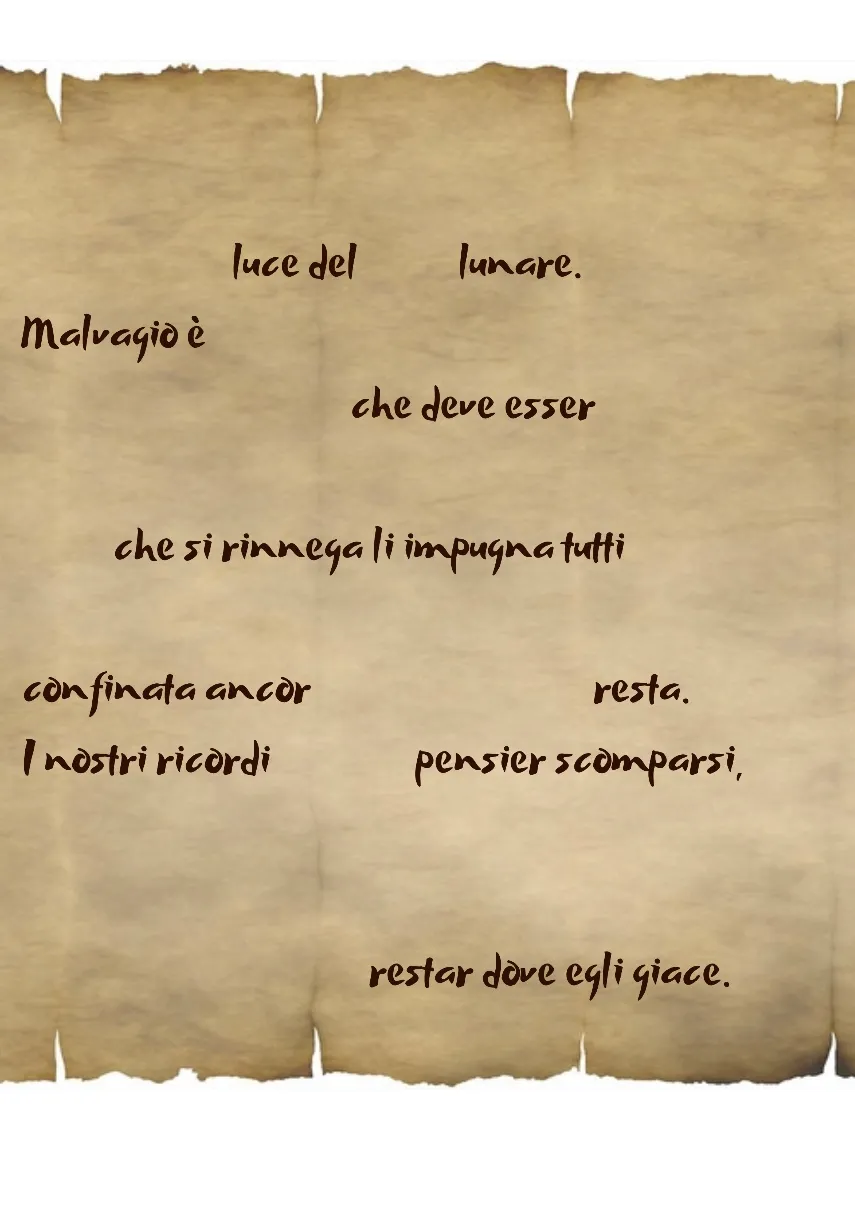 luce del lunare.
Malvagio è
che deve esser
che si rinnega li impugna tutti
confinata ancor resta.
I nostri ricordi pensier scomparsi,
restar dove egli giace.